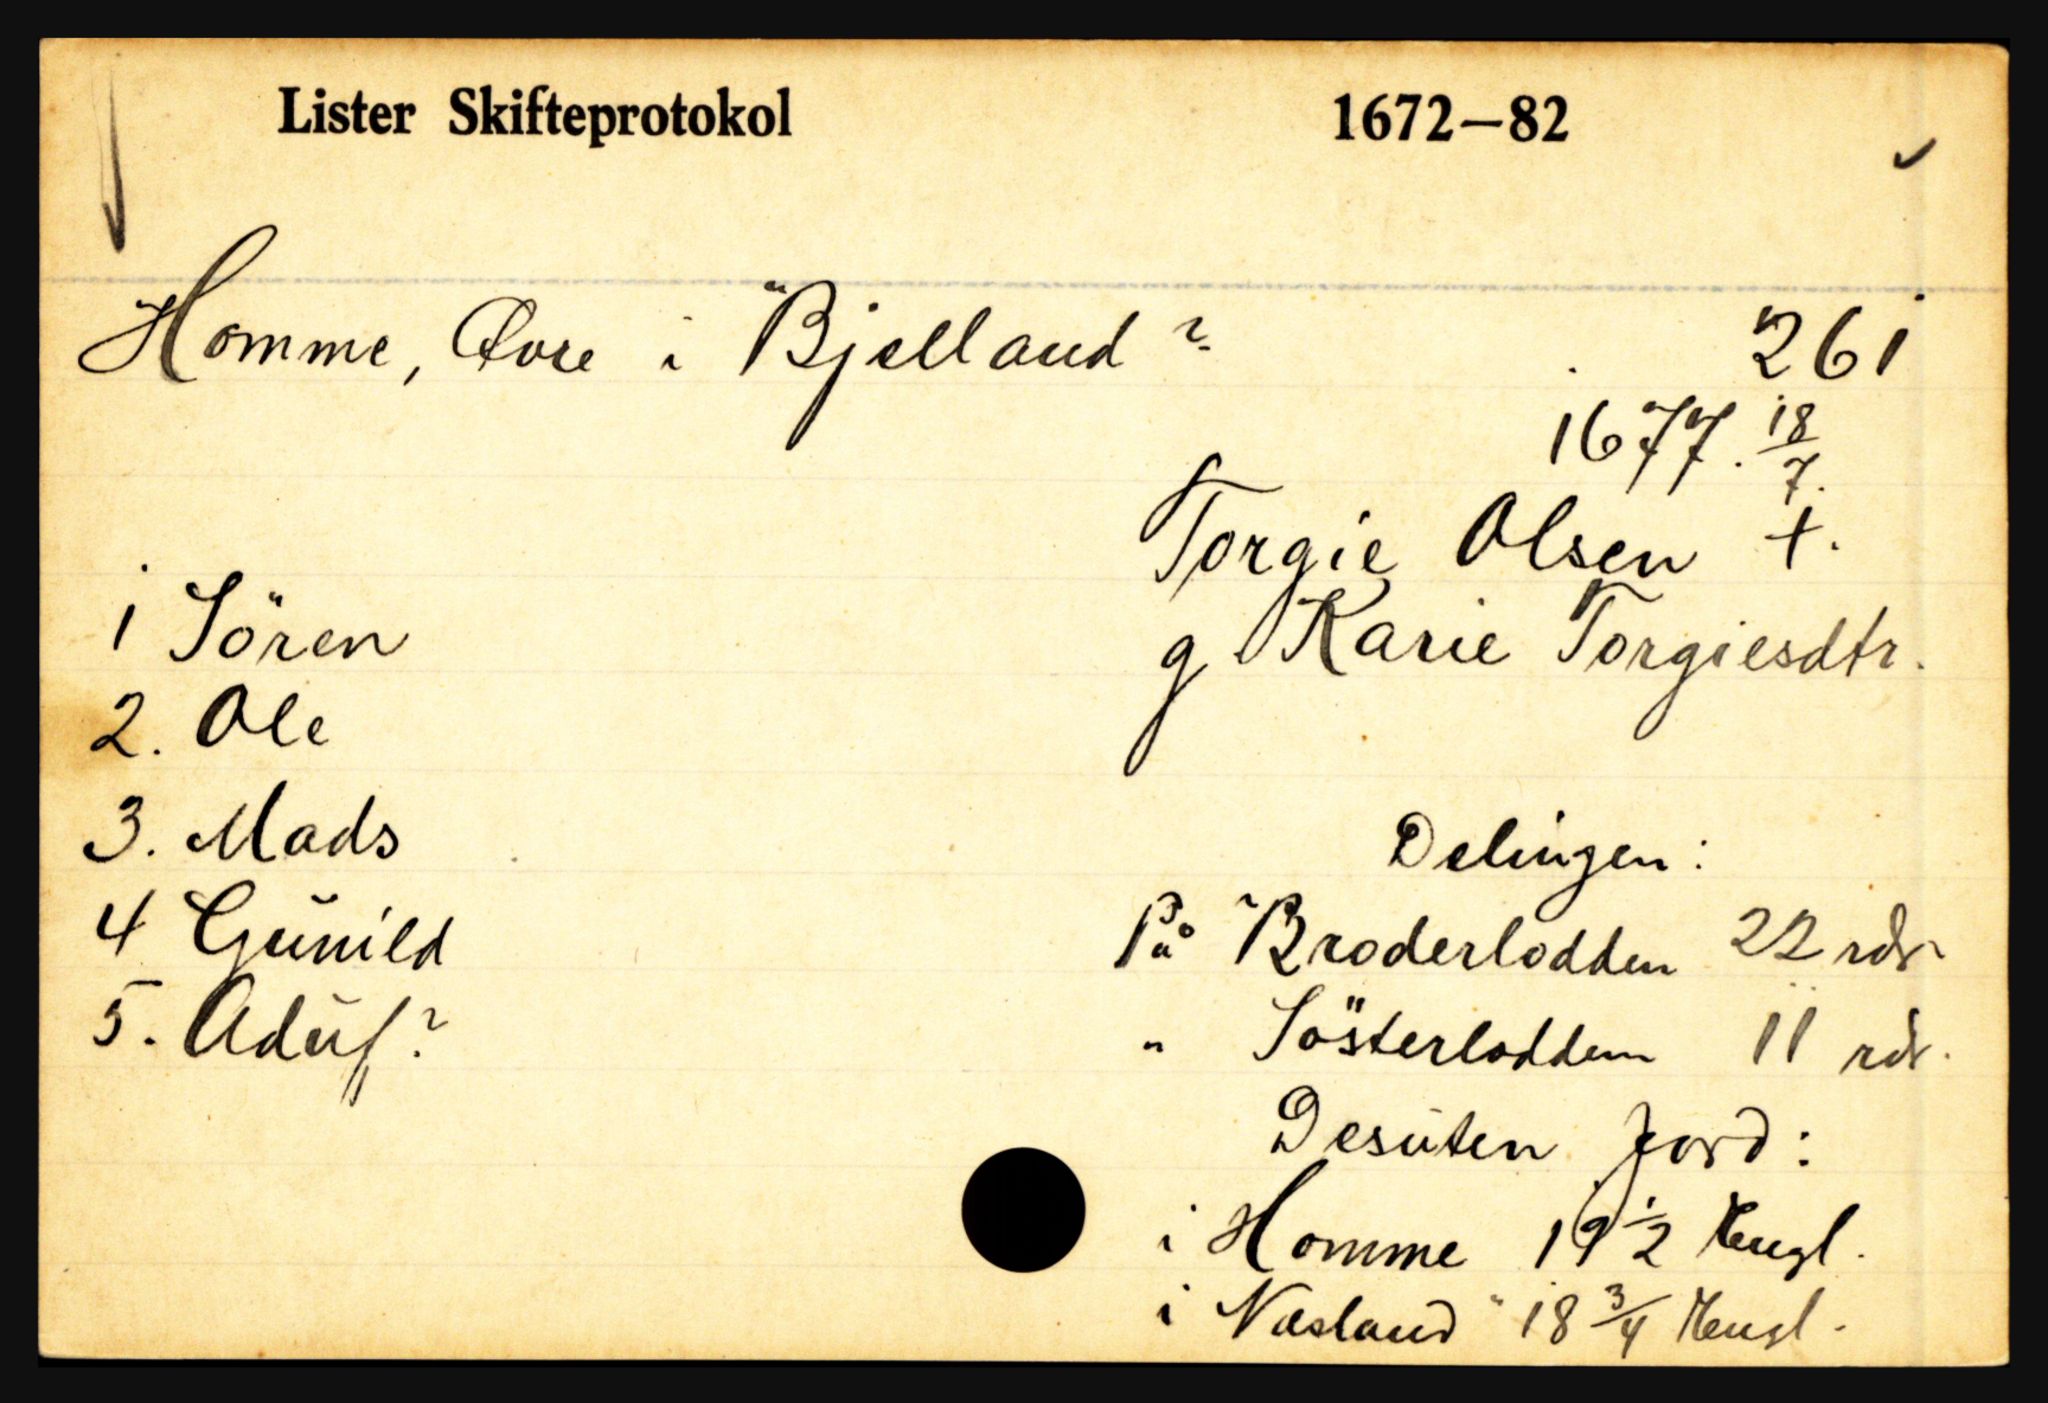 Lister Skifteprotokol 1672–82
Homme, Øvre i "Bjelland? 261
1677. 18/7.
Torgie Olsen †.
g. Karie Torgiesdtr.
1 Sören
2. Ole
3. Mads
4 Gŭnild
5. Adŭf?
Delingen:
På Broderlodden 22 rdr
" Sösterlodden 11 rdr.
Desŭten jord:
i Homme 19 1/2 Engl.
i Næsland 18 3/4 Engl.